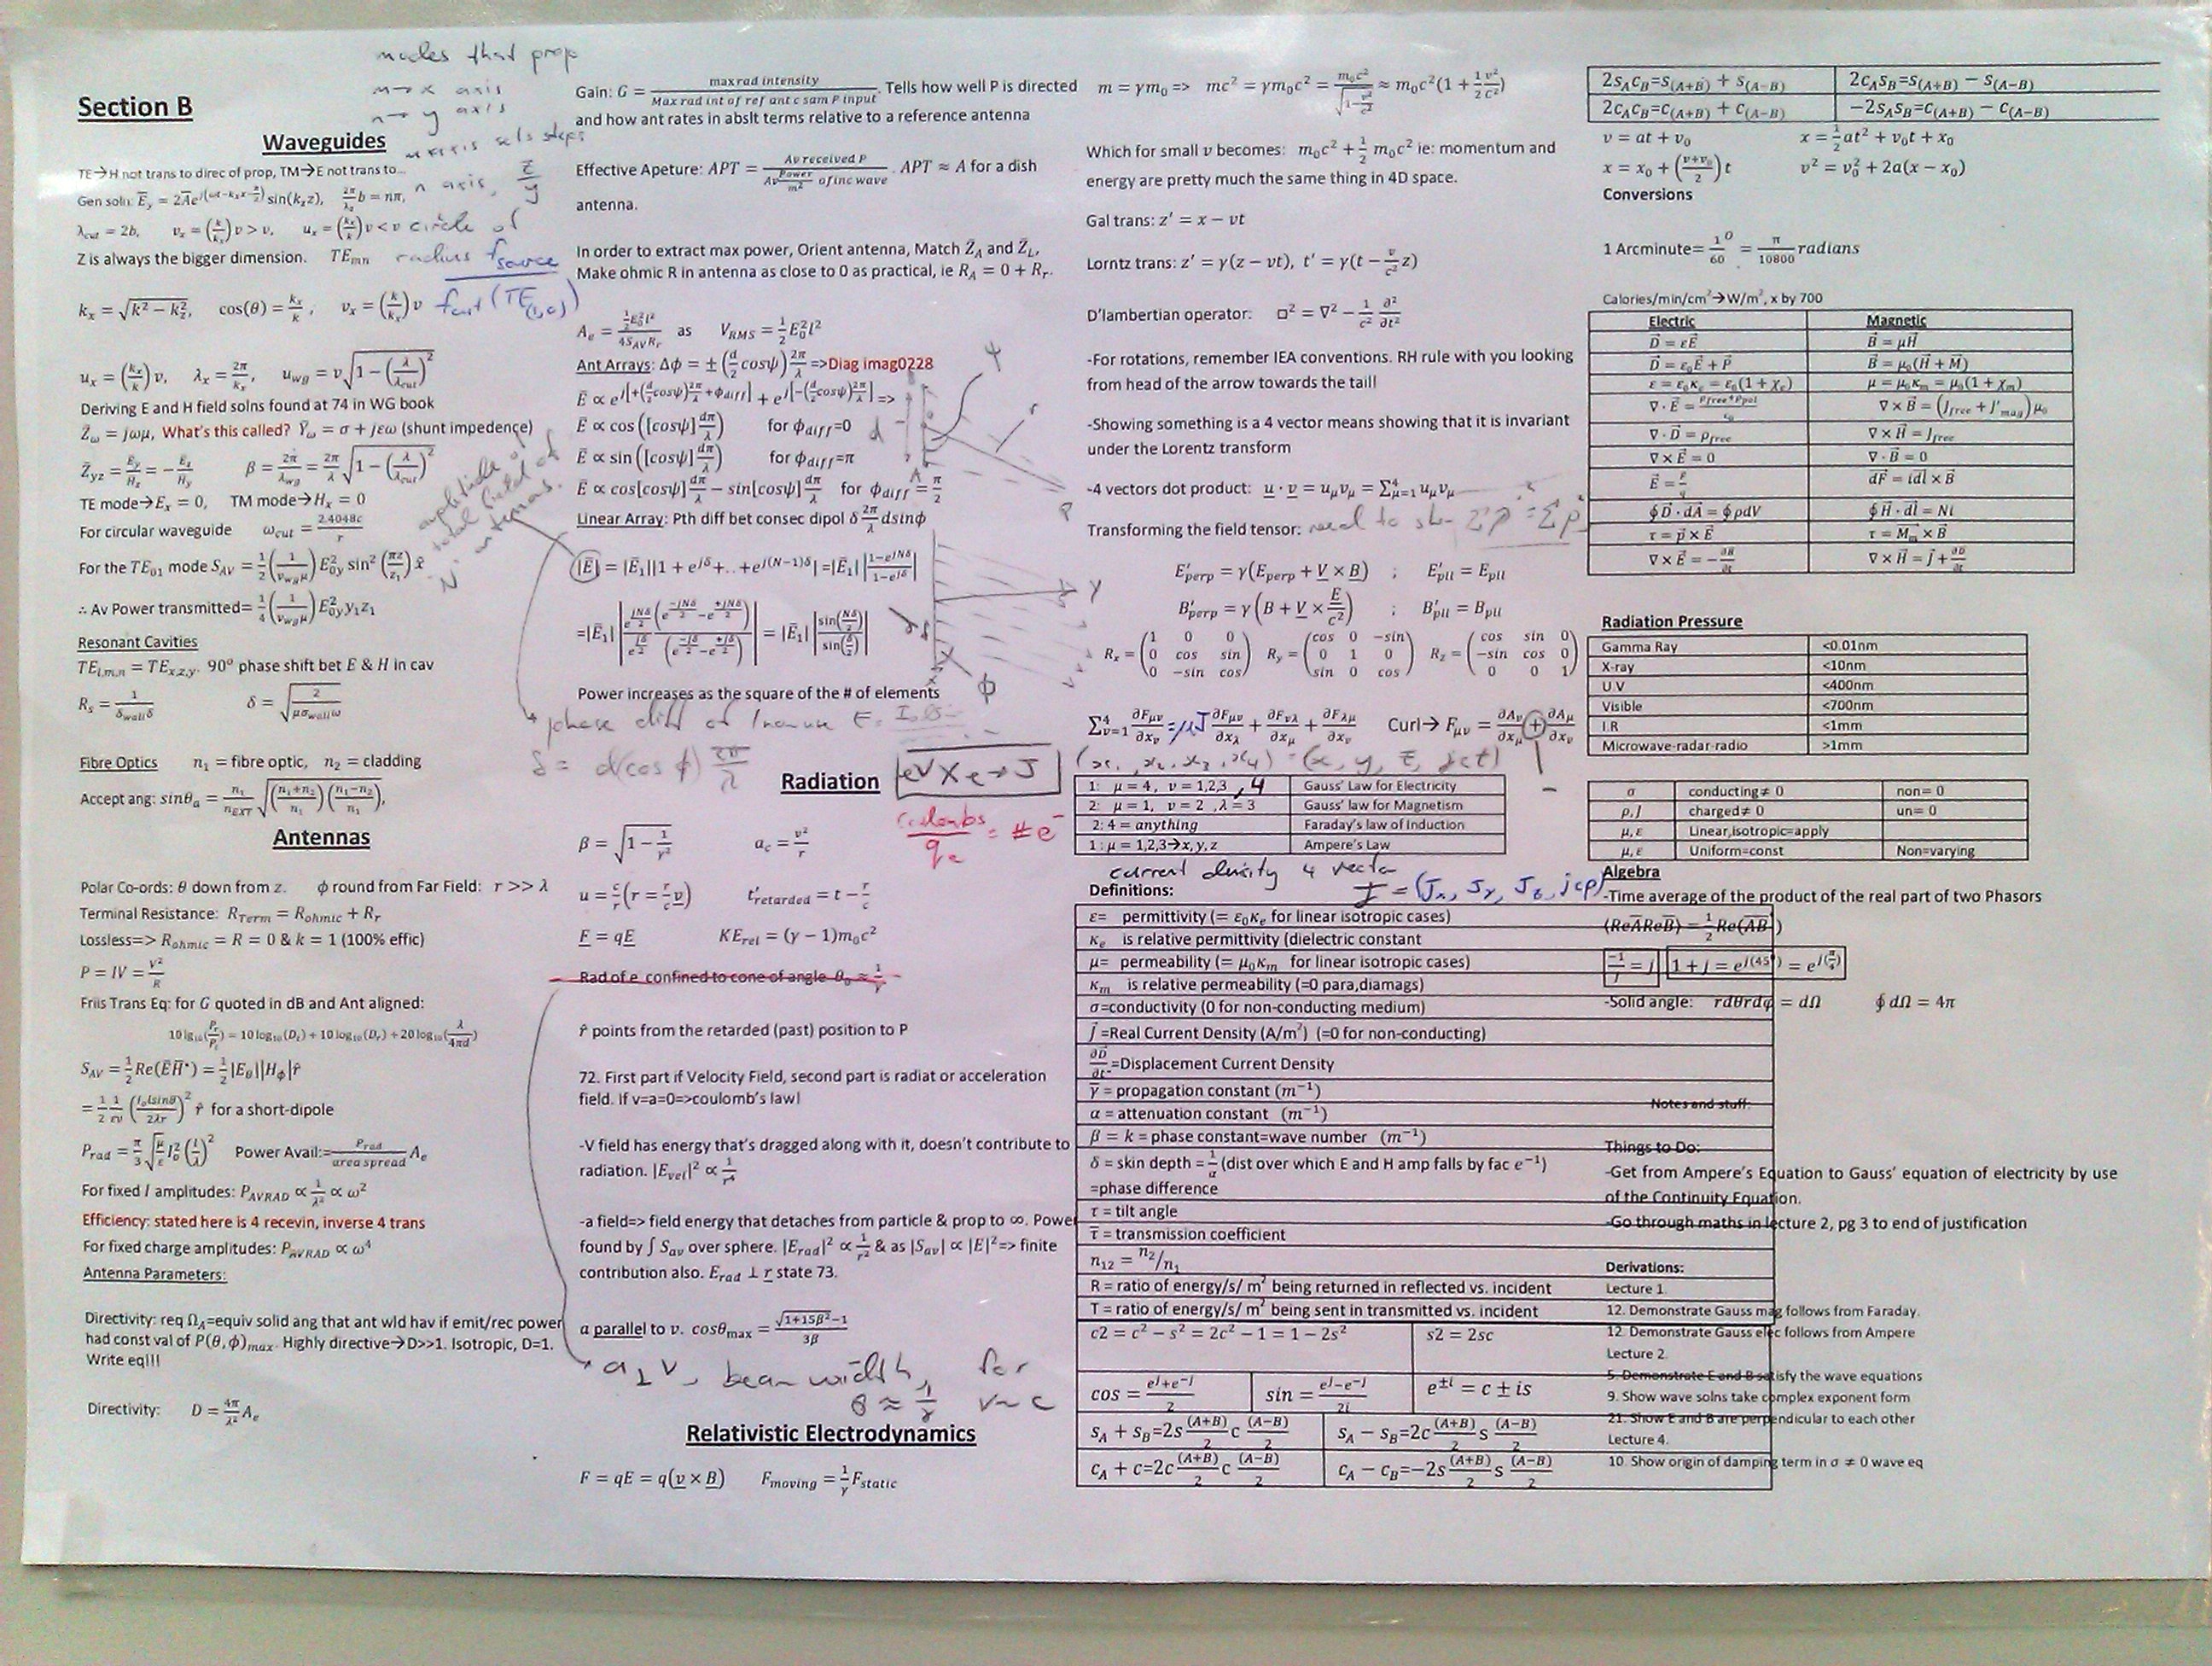 Section B
modes that prop
m→ x axis
n→ y axis
Waveguides
TE→H not trans to direc of prop, TM→E not trans to...
n axis, z/y
Z is always the bigger dimension. TE_mn radius f_source
λ_cut = 2b, v_x = (k/k_x)v > v, u_x = (k_x/k)v < v circle of
k_x = √(k² − k_z²), cos(θ) = k_x/k, v_x = (k/k_x)v f_cut (TE(1,0))
u_x = (k_x/k)v, λ_x = 2π/k_x, u_wg = v√(1 − (λ/λ_cut)²)
Deriving E and H field solns found at 74 in WG book
Z̄_ω = jωμ, What's this called? Ȳ_ω = σ + jεω (shunt impedence)
Z̄_yz = E_y/H_z = −E_z/H_y β = 2π/λ_wg = 2π/λ √(1 − (λ/λ_cut)²)
TE mode→E_x = 0, TM mode→H_x = 0
For circular waveguide ω_cut = 2.4048c/r
For the TE₀₁ mode S_AV = ½(1/(v_wg μ))E²_0y sin²(πz/z₁) x̂
∴ Av Power transmitted= ¼(1/(v_wg μ))E²_0y y₁z₁
Resonant Cavities
TE_l,m,n = TE_x,z,y. 90° phase shift bet E & H in cav
R_s = 1/(δ_wall δ) δ = √(2/(μσ_wall ω))
Fibre Optics n₁ = fibre optic, n₂ = cladding
Accept ang: sinθ_a = n₁/n_EXT √(((n₁+n₂)/n₁)((n₁−n₂)/n₁)),
Antennas
Polar Co-ords: θ down from z. ϕ round from Far Field: r >> λ
Terminal Resistance: R_Term = R_ohmic + R_r
Lossless=> R_ohmic = R = 0 & k = 1 (100% effic)
P = IV = V²/R
Friis Trans Eq: for G quoted in dB and Ant aligned:
10 lg₁₀(P_r/P_t) = 10 log₁₀(D_t) + 10 log₁₀(D_r) + 20 log₁₀(λ/4πd)
S_AV = ½Re(ĒH̄*) = ½|E_θ||H_ϕ|r̂
= ½ 1/εv (I₀lsinθ/2λr)² r̂ for a short-dipole
P_rad = π/3 √(μ/ε) I₀²(l/λ)² Power Avail:= P_rad/area spread A_e
For fixed I amplitudes: P_AVRAD ∝ 1/λ² ∝ ω²
Efficiency: stated here is 4 recevin, inverse 4 trans
For fixed charge amplitudes: P_AVRAD ∝ ω⁴
Antenna Parameters:
Directivity: req Ω_A=equiv solid ang that ant wld hav if emit/rec power
had const val of P(θ, ϕ)_max. Highly directive→D>>1. Isotropic, D=1.
Write eq!!!
Directivity: D = 4π/λ² A_e
Gain: G = max rad intensity / Max rad int of ref ant c sam P input. Tells how well P is directed
and how ant rates in abslt terms relative to a reference antenna
Effective Apeture: APT = Av received P / Av Power/m² of inc wave. APT ≈ A for a dish
antenna.
In order to extract max power, Orient antenna, Match Z̄_A and Z̄_L,
Make ohmic R in antenna as close to 0 as practical, ie R_A = 0 + R_r.
A_e = ½E₀²l² / 4S_AV R_r as V_RMS = ½E₀²l²
Ant Arrays: Δϕ = ±(d/2 cosψ) 2π/λ =>Diag imag0228
Ē ∝ e^j[+(d/2 cosψ)2π/λ + ϕ_diff] + e^j[−(d/2 cosψ)2π/λ] =>
Ē ∝ cos([cosψ] dπ/λ) for ϕ_diff=0
Ē ∝ sin([cosψ] dπ/λ) for ϕ_diff=π
Ē ∝ cos[cosψ] dπ/λ − sin[cosψ] dπ/λ for ϕ_diff = π/2
Linear Array: Pth diff bet consec dipol δ 2π/λ dsinϕ
amplitude of total field of N antennas.
|Ē| = |Ē₁||1 + e^jδ+. . +e^j(N−1)δ| = |Ē₁| |(1−e^jNδ)/(1−e^jδ)|
= |Ē₁| |sin(Nδ/2)/sin(δ/2)|
d
ψ
r
P
Y
ϕ
Power increases as the square of the # of elements
δ = d(cos ϕ) 2π/λ
Radiation
eV × e → J
Coulombs/q_e = # e⁻
β = √(1 − 1/γ²) a_c = v²/r
u = c/r (r = r/c v) t'_retarded = t − r/c
F = qE KE_rel = (γ − 1)m₀c²
Rad of e confined to cone of angle θ₀ ≈ 1/γ
r̂ points from the retarded (past) position to P
72. First part if Velocity Field, second part is radiat or acceleration
field. If v=a=0=>coulomb's law!
-V field has energy that's dragged along with it, doesn't contribute to
radiation. |E_vel|² ∝ 1/r⁴
-a field=> field energy that detaches from particle & prop to ∞. Power
found by ∫ S_av over sphere. |E_rad|² ∝ 1/r² & as |S_av| ∝ |E|²=> finite
contribution also. E_rad ⊥ r state 73.
a parallel to v. cosθ_max = (√(1+15β²)−1)/3β
a ⊥ v, beam width, for
θ ≈ 1/γ v~c
Relativistic Electrodynamics
F = qE = q(v × B) F_moving = 1/γ F_static
m = γm₀ => mc² = γm₀c² = m₀c²/√(1−v²/c²) ≈ m₀c²(1 + ½ v²/c²)
Which for small v becomes: m₀c² + ½ m₀c² ie: momentum and
energy are pretty much the same thing in 4D space.
Gal trans: z' = x − vt
Lorntz trans: z' = γ(z − vt), t' = γ(t − v/c² z)
D'lambertian operator: □² = ∇² − 1/c² ∂²/∂t²
-For rotations, remember IEA conventions. RH rule with you looking
from head of the arrow towards the tail!
-Showing something is a 4 vector means showing that it is invariant
under the Lorentz transform
-4 vectors dot product: u · v = u_μv_μ = Σ⁴_μ=1 u_μv_μ
Transforming the field tensor:
E'_perp = γ(E_perp + V × B) ; E'_pll = E_pll
B'_perp = γ(B + V × E/c²) ; B'_pll = B_pll
R_x = (1 0 0; 0 cos sin; 0 −sin cos) R_y = (cos 0 −sin; 0 1 0; sin 0 cos) R_z = (cos sin 0; −sin cos 0; 0 0 1)
Σ⁴_v=1 ∂F_μv/∂x_v = μJ ∂F_μv/∂x_λ + ∂F_vλ/∂x_μ + ∂F_λμ/∂x_v Curl→ F_μv = ∂A_v/∂x_μ + ∂A_μ/∂x_v
−
(x₁, x₂, x₃, x₄) = (x, y, z, jct)
1: μ = 4, v = 1,2,3 , 4 Gauss' Law for Electricity
2: μ = 1, v = 2 ,λ = 3 Gauss' law for Magnetism
2: 4 = anything Faraday's law of Induction
1: μ = 1,2,3→x, y, z Ampere's Law
current density 4 vector
J = (Jx, Jy, Jz, jcρ)
Definitions:
ε= permittivity (= ε₀κ_e for linear isotropic cases)
κ_e is relative permittivity (dielectric constant
μ= permeability (= μ₀κ_m for linear isotropic cases)
κ_m is relative permeability (=0 para,diamags)
σ=conductivity (0 for non-conducting medium)
J⃗ =Real Current Density (A/m²) (=0 for non-conducting)
∂D⃗/∂t =Displacement Current Density
γ̄ = propagation constant (m⁻¹)
α = attenuation constant (m⁻¹)
β = k = phase constant=wave number (m⁻¹)
δ = skin depth = 1/α (dist over which E and H amp falls by fac e⁻¹)
=phase difference
τ = tilt angle
τ̄ = transmission coefficient
n₁₂ = n₂/n₁
R = ratio of energy/s/ m² being returned in reflected vs. incident
T = ratio of energy/s/ m² being sent in transmitted vs. incident
c2 = c² − s² = 2c² − 1 = 1 − 2s² s2 = 2sc
cos = (e^j+e^−j)/2 sin = (e^j−e^−j)/2i e^±i = c ± is
s_A + s_B=2s (A+B)/2 c (A−B)/2 s_A − s_B=2c (A+B)/2 s (A−B)/2
c_A + c=2c (A+B)/2 c (A−B)/2 c_A − c_B=−2s (A+B)/2 s (A−B)/2
2s_A c_B=s_(A+B) + s_(A−B) 2c_A s_B=s_(A+B) − s_(A−B)
2c_A c_B=c_(A+B) + c_(A−B) −2s_A s_B=c_(A+B) − c_(A−B)
v = at + v₀ x = ½at² + v₀t + x₀
x = x₀ + ((v+v₀)/2)t v² = v₀² + 2a(x − x₀)
Conversions
1 Arcminute= 1/60 ° = π/10800 radians
Calories/min/cm²→W/m², x by 700
Electric Magnetic
D⃗ = εE⃗ B⃗ = μH⃗
D⃗ = ε₀E⃗ + P⃗ B⃗ = μ₀(H⃗ + M⃗)
ε = ε₀κ_e = ε₀(1 + χ_e) μ = μ₀κ_m = μ₀(1 + χ_m)
∇ · E⃗ = (ρ_free+ρ_pol)/ε₀ ∇ × B⃗ = (J_free + J'_mag)μ₀
∇ · D⃗ = ρ_free ∇ × H⃗ = J_free
∇ × E⃗ = 0 ∇ · B⃗ = 0
E⃗ = F/q dF⃗ = idl⃗ × B⃗
∮ D⃗ · dA⃗ = ∮ ρdV ∮ H⃗ · dl⃗ = Ni
τ = p⃗ × E⃗ τ = M⃗_m × B⃗
∇ × E⃗ = −∂B/∂t ∇ × H⃗ = J⃗ + ∂D/∂t
Radiation Pressure
Gamma Ray <0.01nm
X-ray <10nm
U.V <400nm
Visible <700nm
I.R <1mm
Microwave-radar-radio >1mm
σ conducting≠ 0 non= 0
ρ, J charged≠ 0 un= 0
μ, ε Linear,isotropic=apply
μ, ε Uniform=const Non=varying
Algebra
-Time average of the product of the real part of two Phasors
(ReĀReB̄) = ½Re(ĀB̄ )
−1/j = j 1 + j = e^j(45°) = e^j(π/4)
-Solid angle: rdθrdφ = dΩ ∮ dΩ = 4π
Notes and stuff:
Things to Do:
-Get from Ampere's Equation to Gauss' equation of electricity by use
of the Continuity Equation.
-Go through maths in lecture 2, pg 3 to end of justification
Derivations:
Lecture 1.
12. Demonstrate Gauss mag follows from Faraday.
12. Demonstrate Gauss elec follows from Ampere
Lecture 2.
5. Demonstrate E and B satisfy the wave equations
9. Show wave solns take complex exponent form
21. Show E and B are perpendicular to each other
Lecture 4.
10. Show origin of damping term in σ ≠ 0 wave eq